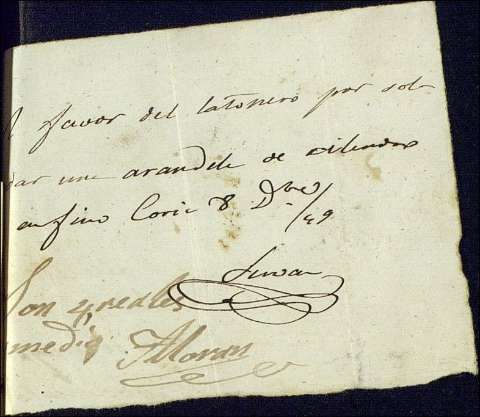 favor del latonero por sol
dar una arandela de cilindro
en fino Coria 8 Dbre/49
Son 4, reales
medio